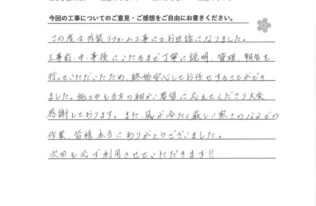 今回の工事についてのご意見・ご感想をご自由にお書きください。
この度は外装リフォーム工事にてお世話になりました。
工事前、中、事後にいたるまで丁寧に説明、管理、報告を
行っていただいたため、終始安心してお任せすることができ
ました。施工中も当方の細かい要望に応えてくださり大変
感謝しております。また、風が冷たく厳しい寒さのなかでの
作業、皆様本当にありがとうございました。
次回も必ず利用させていただきます!!